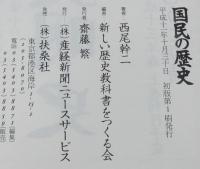 国民の歴史
平成十一年十月三十日 初版第1刷発行
著者 西尾幹二
編者 新しい歴史教科書をつくる会
発行者 齋藤 繁
発行 (株)産経新聞ニュースサービス
発売 (株)扶桑社
東京都港区海岸